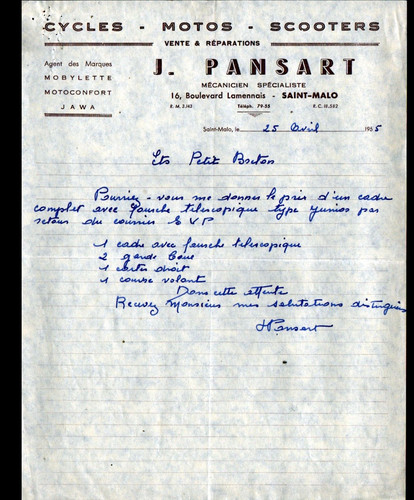 CYCLES - MOTOS - SCOOTERS
VENTE & RÉPARATIONS
Agent des Marques
MOBYLETTE
MOTOCONFORT
JAWA
J. PANSART
MÉCANICIEN SPÉCIALISTE
16, Boulevard Lamennais - SAINT-MALO
R. M. 2.162 Téléph. 79-55 R. C. 18.582
Saint-Malo, le 25 Avril 1955
Ets Petit Breton
Pourriez-vous me donner le prix d'un cadre
complet avec fourche telescopique type junior par
retour du courrier S V P
1 cadre avec fourche telescopique
2 garde boue
1 carter droit
1 couvre volant
Dans cette attente
Recevez Monsieur mes salutations distinguées
J Pansart